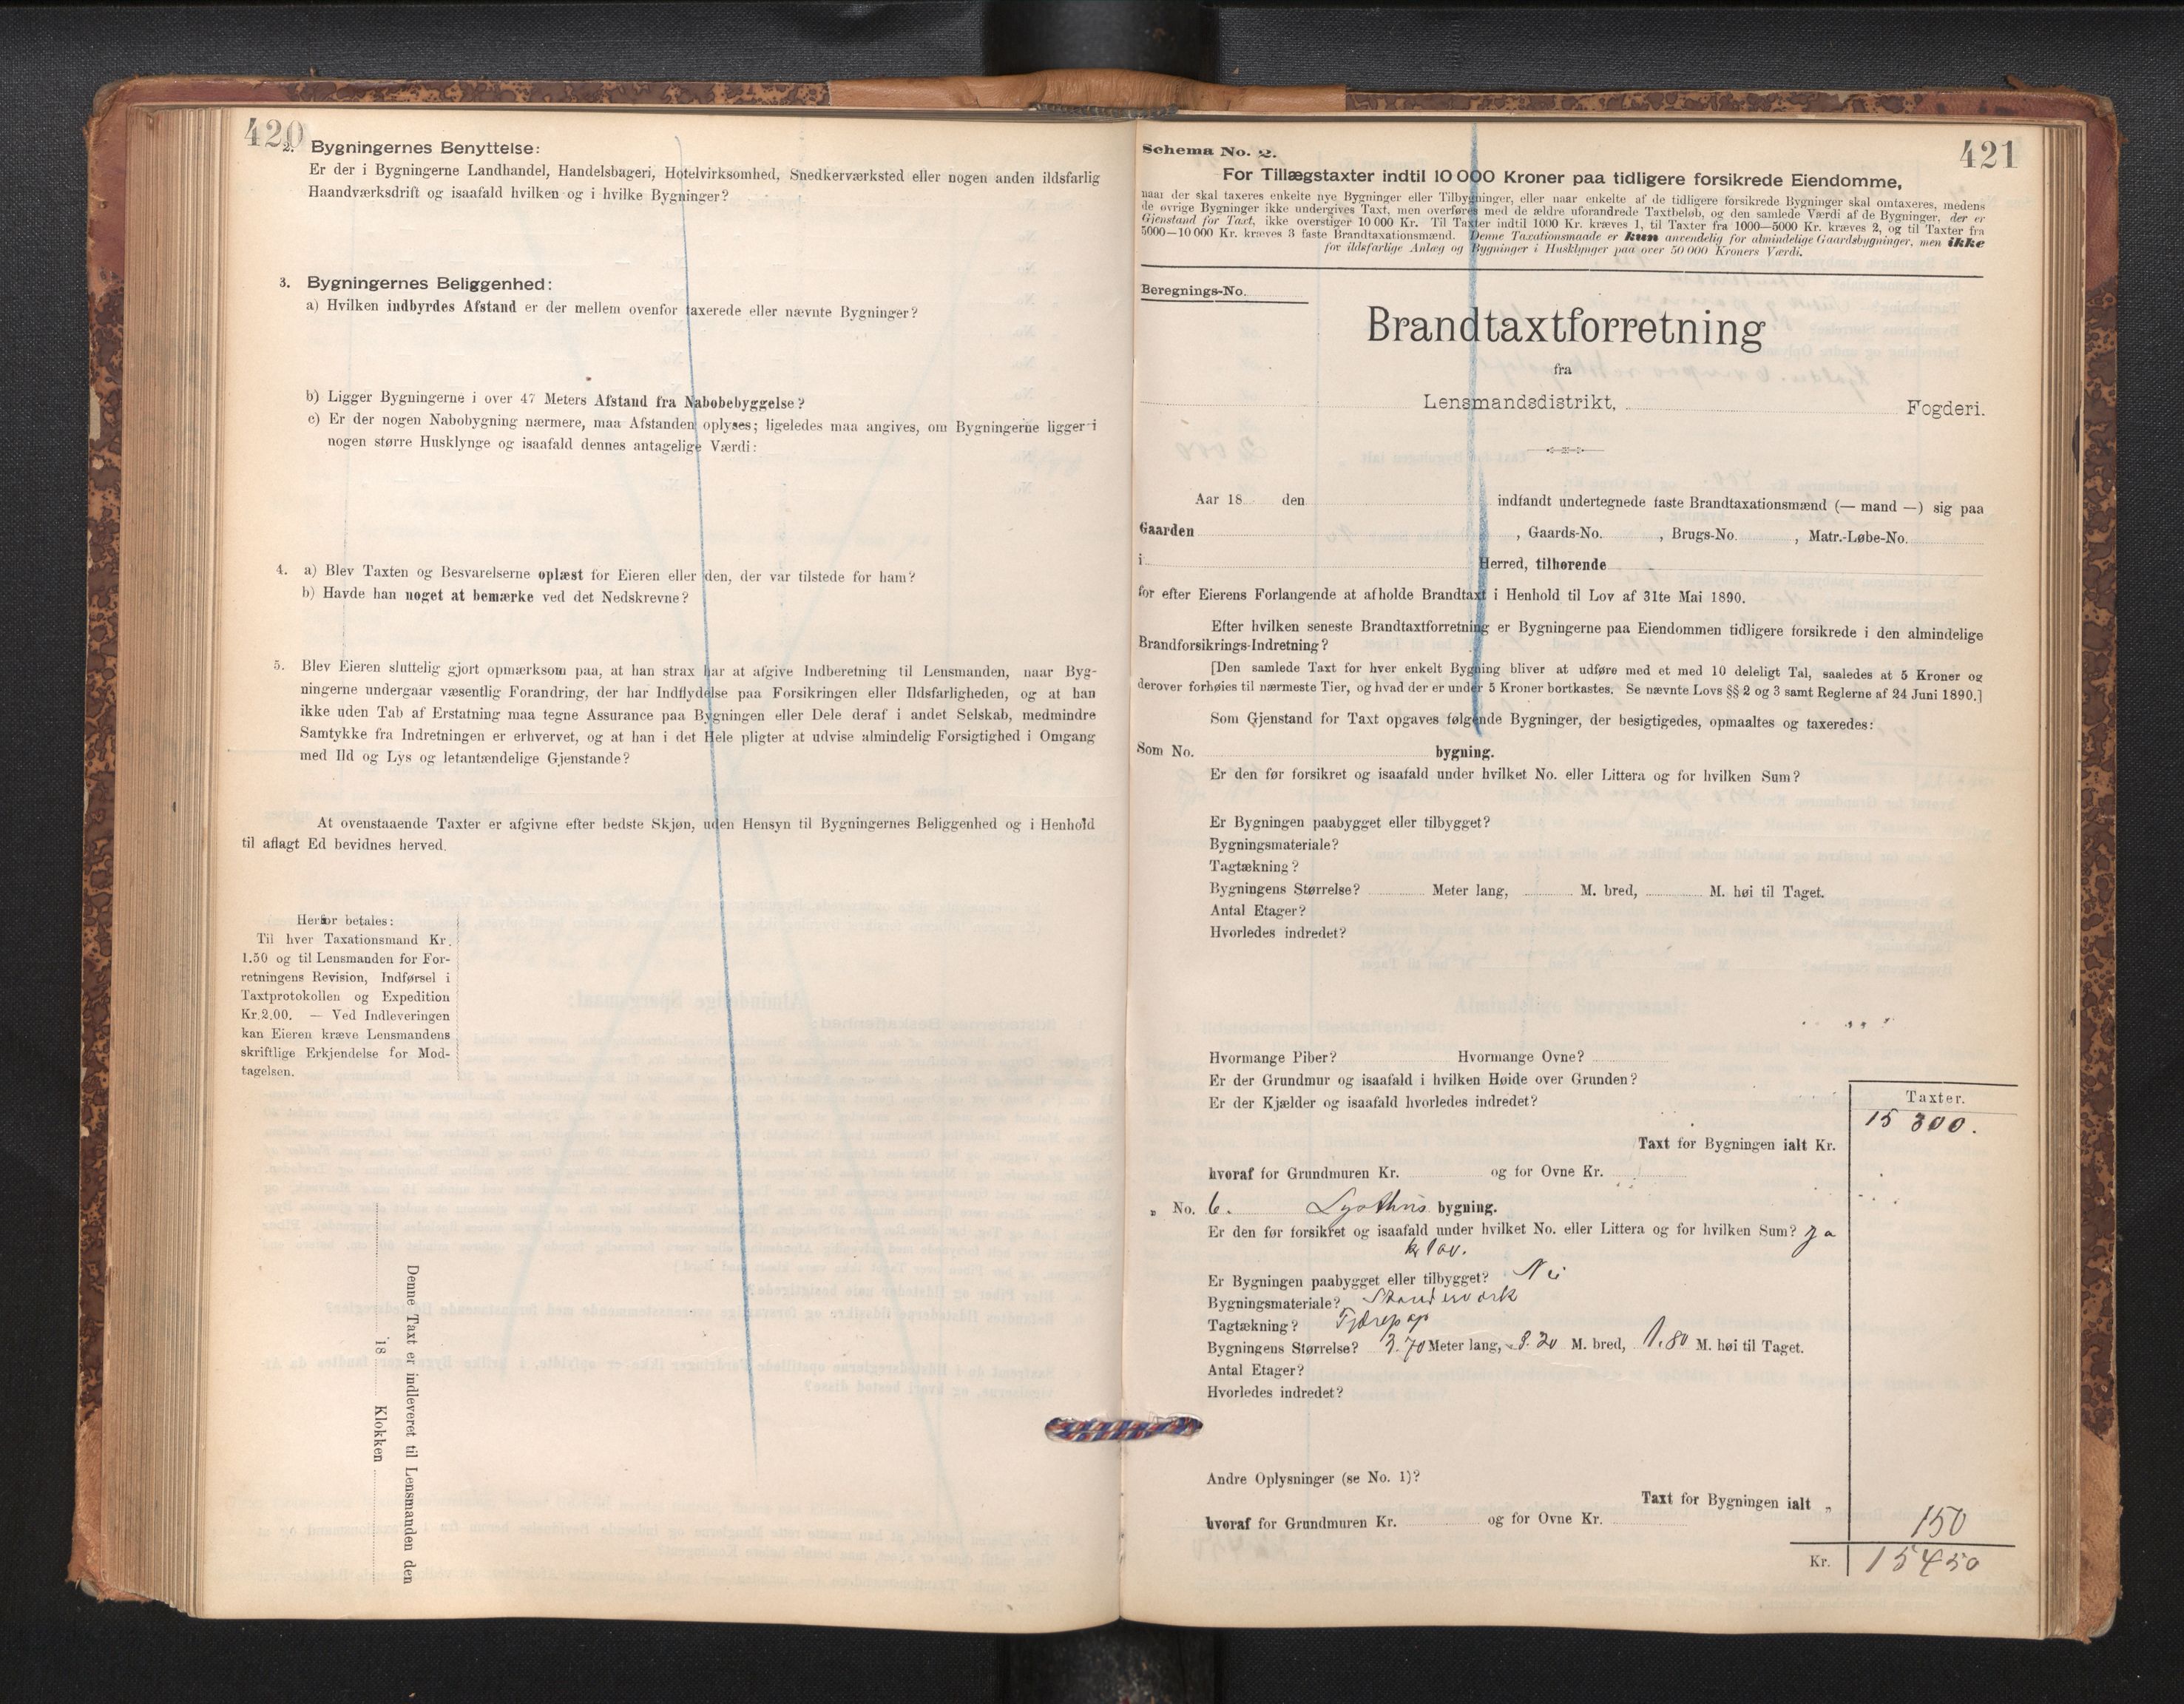 420
2. Bygningernes Benyttelse:
Er der i Bygningerne Landhandel, Handelsbageri, Hotelvirksomhed, Snedkerværksted eller nogen anden ildsfarlig
Haandværksdrift og isaafald hvilken og i hvilke Bygninger?
3. Bygningernes Beliggenhed:
a) Hvilken indbyrdes Afstand er der mellem ovenfor taxerede eller nævnte Bygninger?
b) Ligger Bygningerne i over 47 Meters Afstand fra Nabobebyggelse?
c) Er der nogen Nabobygning nærmere, maa Afstanden oplyses; ligeledes maa angives, om Bygningerne ligger i
nogen større Husklynge og isaafald dennes antagelige Værdi:
4. a) Blev Taxten og Besvarelserne oplæst for Eieren eller den, der var tilstede for ham?
b) Havde han noget at bemærke ved det Nedskrevne?
5. Blev Eieren sluttelig gjort opmærksom paa, at han strax har at afgive Indberetning til Lensmanden, naar Byg-
ningerne undergaar væsentlig Forandring, der har Indflydelse paa Forsikringen eller Ildsfarligheden, og at han
ikke uden Tab af Erstatning maa tegne Assurance paa Bygningen eller Dele deraf i andet Selskab, medmindre
Samtykke fra Indretningen er erhvervet, og at han i det Hele pligter at udvise almindelig Forsigtighed i Omgang
med Ild og Lys og letantændelige Gjenstande?
At ovenstaaende Taxter er afgivne efter bedste Skjøn, uden Hensyn til Bygningernes Beliggenhed og i Henhold
til aflagt Ed bevidnes herved.
Herfor betales:
Til hver Taxationsmand Kr.
1.50 og til Lensmanden for For-
retningens Revision, Indførsel i
Taxtprotokollen og Expedition
Kr. 2.00. — Ved Indleveringen
kan Eieren kræve Lensmandens
skriftlige Erkjendelse for Mod-
tagelsen.
Denne Taxt er indleveret til Lensmanden den
18 Klokken
421
Schema No. 2.
For Tillægstaxter indtil 10 000 Kroner paa tidligere forsikrede Eiendomme,
naar der skal taxeres enkelte nye Bygninger eller Tilbygninger, eller naar enkelte af de tidligere forsikrede Bygninger skal omtaxeres, medens
de øvrige Bygninger ikke undergives Taxt, men overføres med de ældre uforandrede Taxtbeløb, og den samlede Værdi af de Bygninger, der er
Gjenstand for Taxt, ikke overstiger 10 000 Kr. Til Taxter indtil 1000 Kr. kræves 1, til Taxter fra 1000—5000 Kr. kræves 2, og til Taxter fra
5000—10 000 Kr. kræves 3 faste Brandtaxationsmænd. Denne Taxationsmaade er kun anvendelig for almindelige Gaardsbygninger, men ikke
for ildsfarlige Anlæg og Bygninger i Husklynger paa over 50 000 Kroners Værdi.
Beregnings-No.
Brandtaxtforretning
fra
Lensmandsdistrikt, Fogderi.
Aar 18 den indfandt undertegnede faste Brandtaxationsmænd (— mand —) sig paa
Gaarden , Gaards-No. , Brugs-No. , Matr.-Løbe-No.
i Herred, tilhørende
for efter Eierens Forlangende at afholde Brandtaxt i Henhold til Lov af 31te Mai 1890.
Efter hvilken seneste Brandtaxtforretning er Bygningerne paa Eiendommen tidligere forsikrede i den almindelige
Brandforsikrings-Indretning?
[Den samlede Taxt for hver enkelt Bygning bliver at udføre med et med 10 deleligt Tal, saaledes at 5 Kroner og
derover forhøies til nærmeste Tier, og hvad der er under 5 Kroner bortkastes. Se nævnte Lovs §§ 2 og 3 samt Reglerne af 24 Juni 1890.]
Som Gjenstand for Taxt opgaves følgende Bygninger, der besigtigedes, opmaaltes og taxeredes:
Som No. bygning.
Er den før forsikret og isaafald under hvilket No. eller Littera og for hvilken Sum?
Er Bygningen paabygget eller tilbygget?
Bygningsmateriale?
Tagtækning?
Bygningens Størrelse? Meter lang, M. bred, M. høi til Taget.
Antal Etager?
Hvorledes indredet?
Hvormange Piber? Hvormange Ovne?
Er der Grundmur og isaafald i hvilken Høide over Grunden?
Er der Kjælder og isaafald hvorledes indredet?
Taxter.
15 300.
Taxt for Bygningen ialt Kr.
hvoraf for Grundmuren Kr. og for Ovne Kr.
„ No. 6. Lysthus bygning.
Er den før forsikret og isaafald under hvilket No. eller Littera og for hvilken Sum? Ja
kr 100.
Er Bygningen paabygget eller tilbygget? Nei
Bygningsmateriale? Standerværk
Tagtækning? Tjærepap
Bygningens Størrelse? 3.70 Meter lang, 3.20 M. bred, 1.80 M. høi til Taget.
Antal Etager?
Hvorledes indredet?
Andre Oplysninger (se No. 1)?
Taxt for Bygningen ialt „
hvoraf for Grundmuren Kr. og for Ovne Kr.
150
Kr. 15450